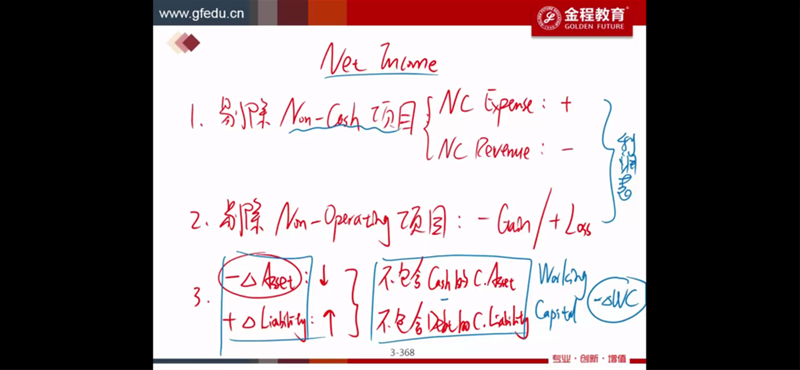 www.gfedu.cn
金程教育
GOLDEN FUTURE
Net Income
1. 剔除 Non-Cash 项目 { NC Expense: +
NC Revenue: -
利润表
2. 剔除 Non-Operating 项目: - Gain / + Loss
3. - △ Asset: ↓ } 不包含 Cash的 C.Asset Working
+ △ Liability: ↑ 不包含 Debt的 C.Liability Capital -△WC
3-368
专业·创新·增值